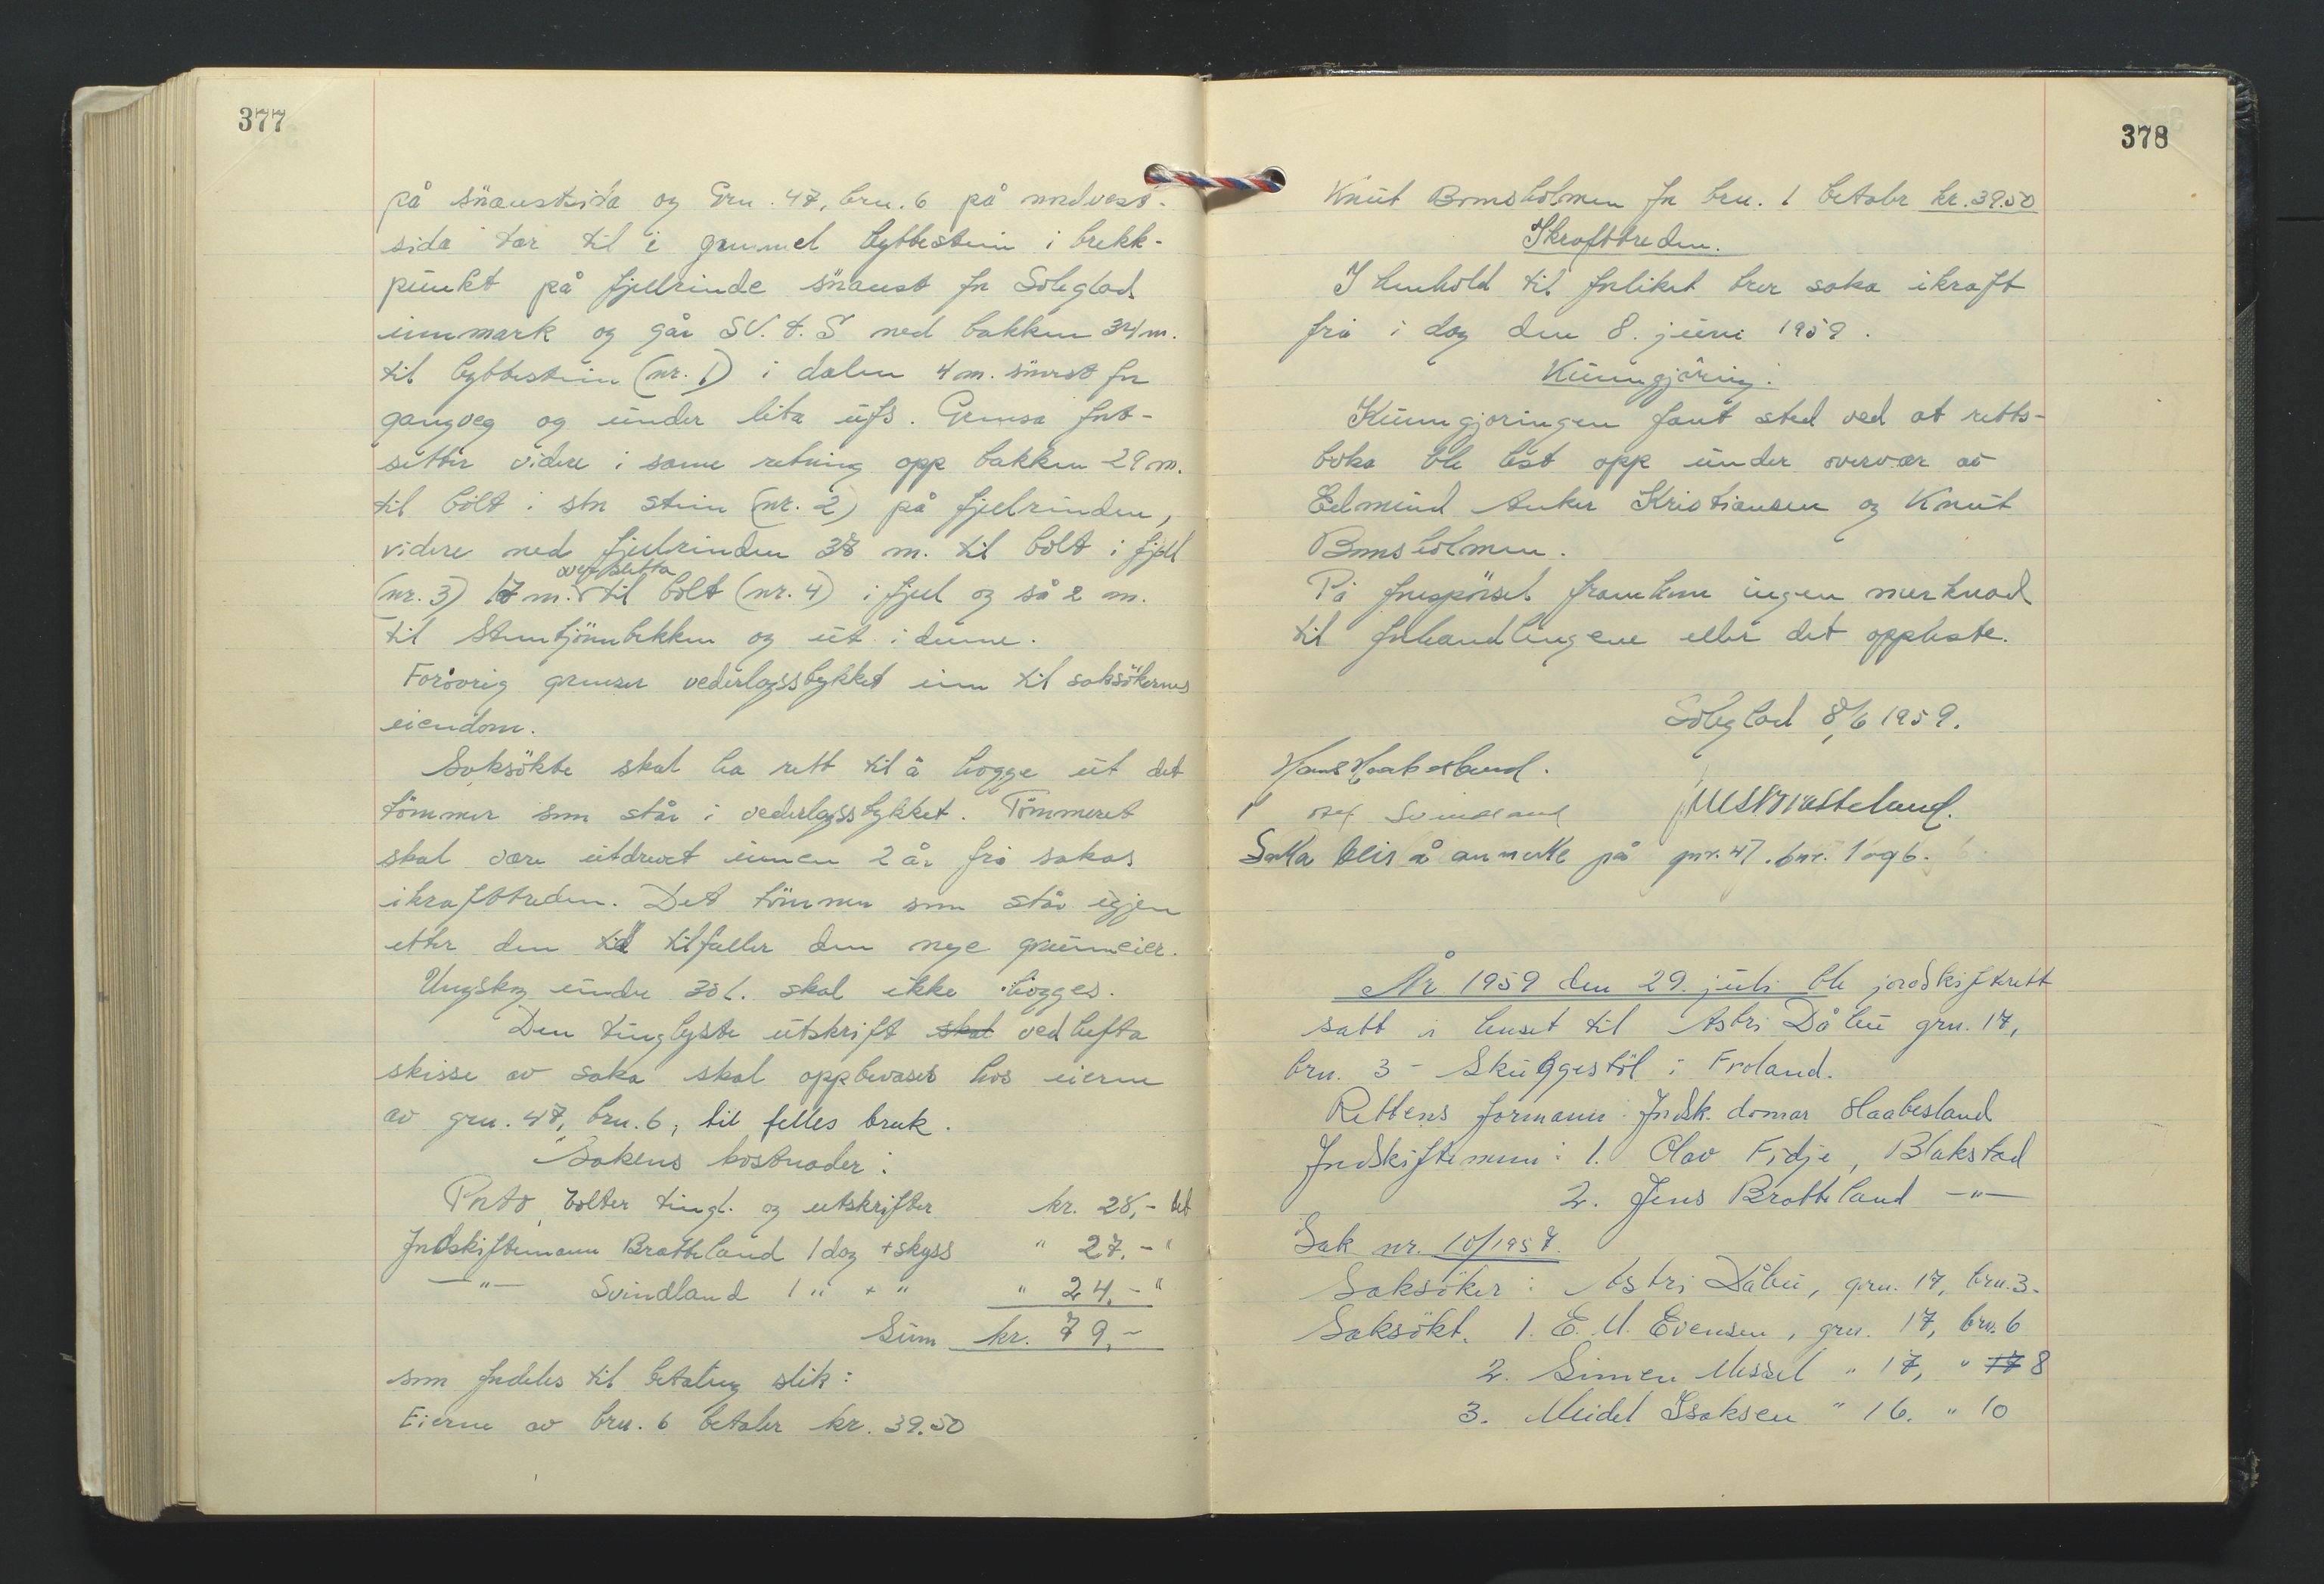 377
på snaustsida og Gnr. 47, bnr. 6 på nordvest-
sida tar til i gammel byttestein i brekk-
punkt på fjellrinde snaust for Soleglad
innmark og går SV. t. S ned bakken 34 m.
til byttestein (nr. 1) i dalen 4 m. snorst for
gangveg og under lita ufs. Grensa fort-
setter videre i same retning opp bakken 29 m.
til bolt i stor stein (nr. 2) på fjellrinden,
videre ned fjellrinden 38 m. til bolt i fjell
over sletta
(nr. 3) 17 m. til bolt (nr. 4) i fjell og så 2 m.
til Stemtjönnbekken og ut i denne.
Forövrig grenser vederlagsstykket inn til saksökernes
eiendom.
Saksökte skal ha rett til å hogge ut det
tömmer som står i vederlagsstykket. Tömmeret
skal være utdrevet innen 2 år fra sakas
ikrafttreden. Det tömmer som står igjen
etter den tid tilfaller den nye grunneier.
Ungskog under 30 l. skal ikke hogges.
Den tinglyste utskrift skal vedhefta
skisse av saka skal oppbevares hos eierne
av gnr. 47, bnr. 6, til felles bruk.
Sakens kostnader:
Porto, bolter tingl. og utskrifter kr. 28,- tet
Jordskiftemann Bratteland 1 dag + skyss " 27.- "
-"- Svindland 1 " + " " 24.- "
Sum kr. 79,-
som fordeles til betaling slik:
Eierne av bnr. 6 betaler kr. 39.50
378
Knut Bomsholmen for bnr. 1 betaler kr. 39.50
Ikrafttreden.
I henhold til forliket trer saka ikraft
fra i dag den 8. juni 1959.
Kunngjöring.
Kunngjöringen fant sted ved at retts-
boka ble lest opp under overvær av
Edmund Anker Kristiansen og Knut
Bomsholmen.
På forespörsel framkom ingen merknad
til forhandlingene eller det oppleste.
Soleglad 8/6 1959.
Hans Haabesland.
Svindland Jens Bratteland.
Saka blir å anmerke på gnr. 47. bnr. 1 og 6.
År 1959 den 29. juli ble jordskifterett
satt i huset til Astri Dåbu gnr. 17,
bnr. 3 - Skuggestöl i Froland.
Rettens formann: Jordsk. domar Haabesland
Jordskiftemenn: 1. Olav Fidje, Blakstad
2. Jens Bratteland -"-
Sak nr. 10/1957.
Saksöker: Astri Dåbu, gnr. 17, bnr. 3.
Saksökt. 1. E. M. Evensen, gnr. 17, bnr. 6
2. Simen Messel " 17, " 17 8
3. Meidel Isaksen " 16. " 10